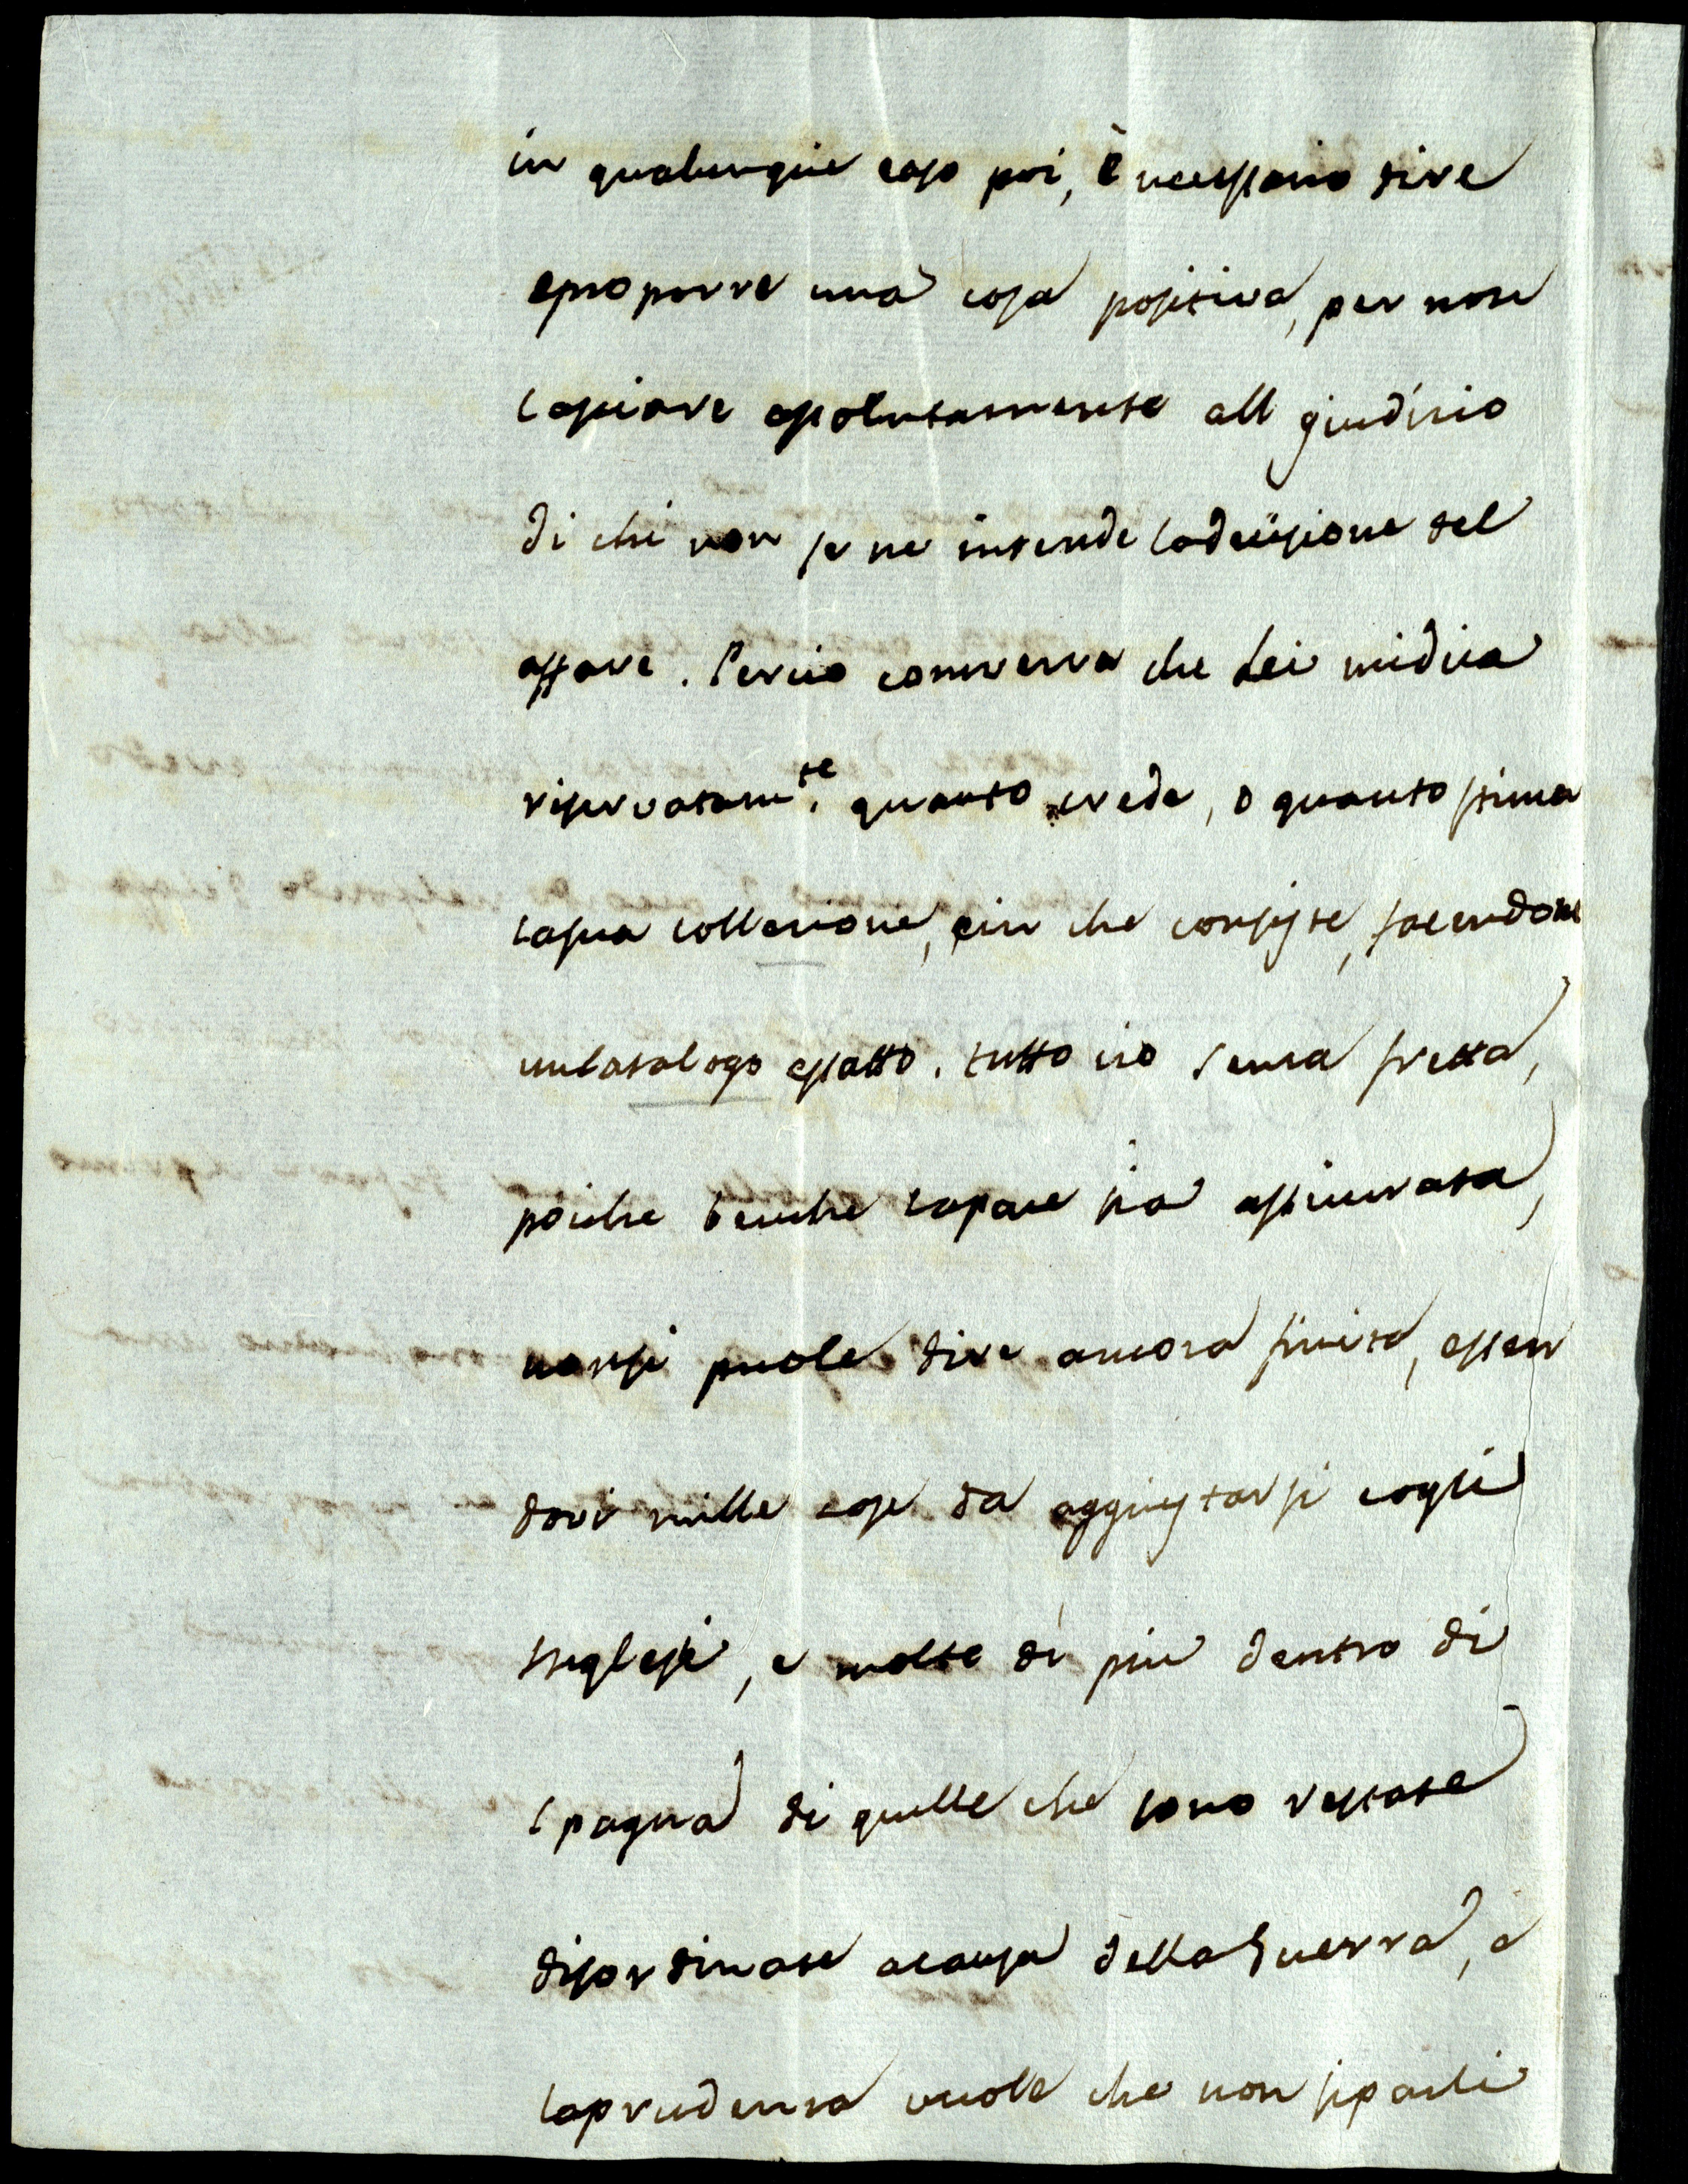 in qualunque caso poi, è necessario dire
e proporre una cosa positiva, per non
lasciare assolutamente all giudizio
di chi non se ne intende la decisione del
affare. Percio converra che Lei midica
riservatamte. quanto crede, o quanto stima
lasua collezione, ein che consiste, facendone
uncatalogo esatto. tutto cio senza fretta,
poiche benche lapace sia assicurata,
nonsi puole dire ancora finita, essen
dovi mille cose da aggiustarsi cogli
Inglesi, e molte di piu dentro di
spagna di quelle che sono restate
disordinate acausa della Guerra, e
laprudenza vuole che non siparli